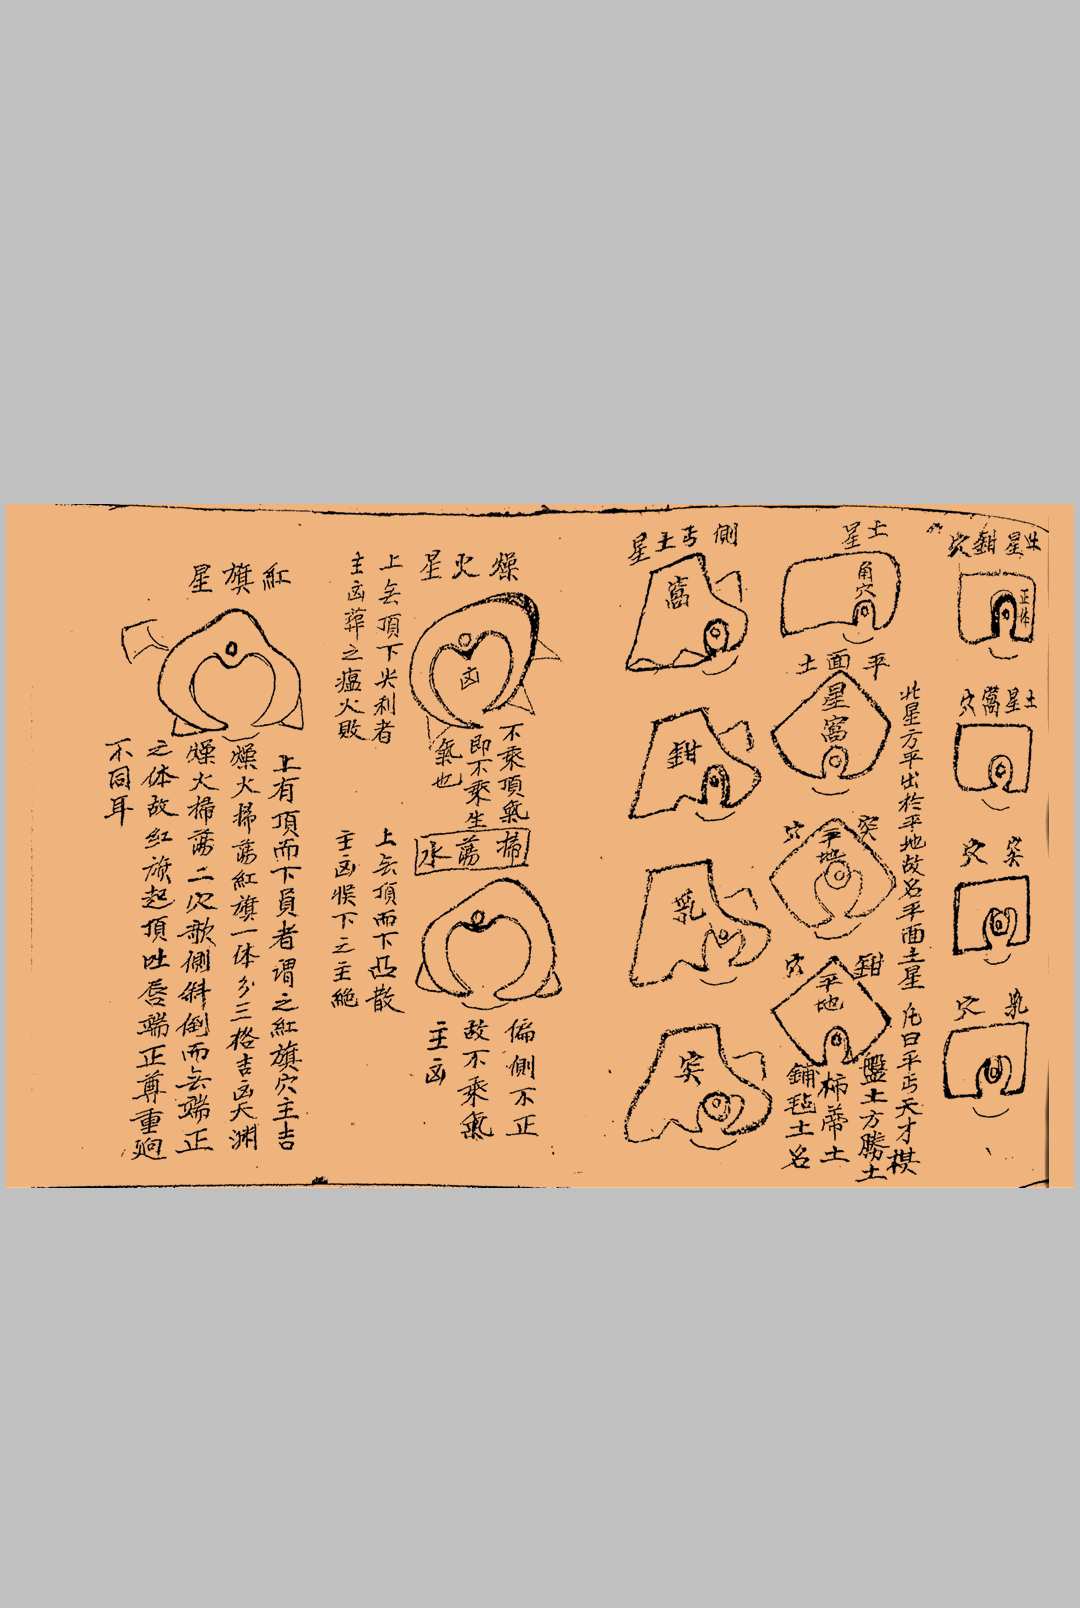 土星鉗穴
正体
土星窩穴
突穴
乳穴
此星方平出於平地故名平面土星
凡曰平丐天才棋
盤土方勝土
柿蒂土
鋪毡土名
土星
角穴
平面土
星窩
突穴
平地
鉗穴
平地
側丐土星
窩
鉗
乳
突
燥火星
凶
不乘頂氣
即不乘生
氣也
上无頂下尖利者
主凶葬之瘟火敗
掃蕩水
偏側不正
故不乘氣
主凶
上无頂而下凸散
主凶候下之主絶
紅旗星
上有頂而下員者谓之紅旗穴主吉
燥火掃蕩紅旗一体分三格吉凶天渊
燥火掃蕩二穴欹側斜倒而无端正
之体故紅旗起頂吐唇端正尊重迥
不同耳